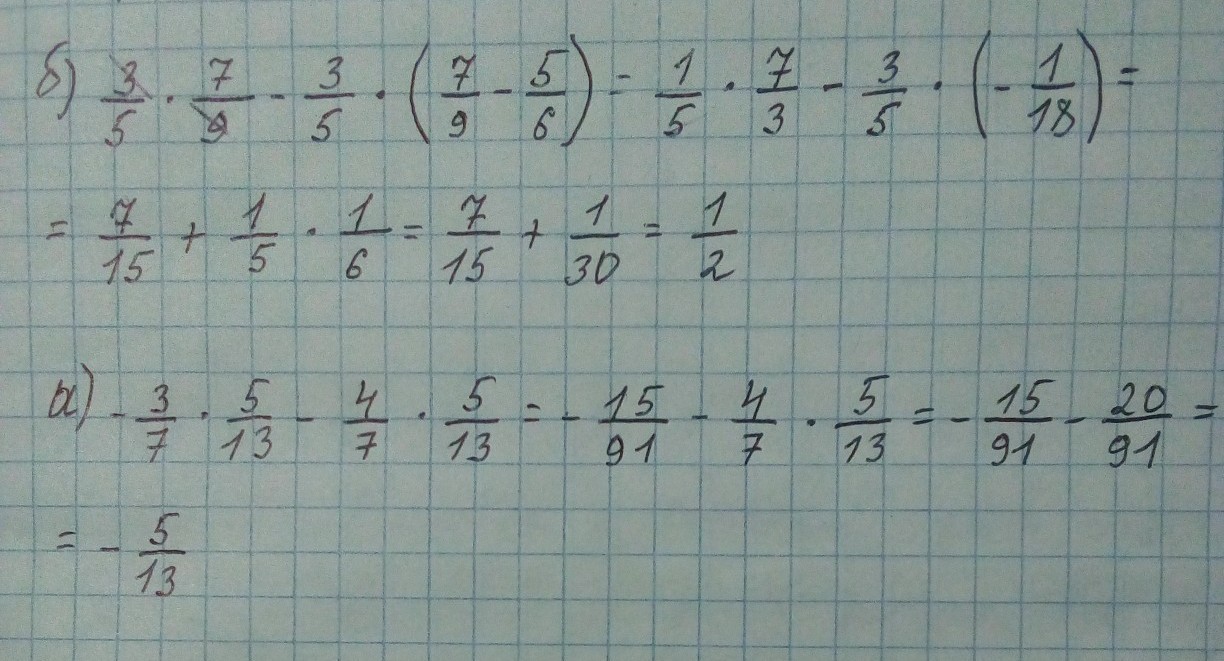 б) 3/5 · 7/9 - 3/5 · (7/9 - 5/6) - 1/5 · 7/3 - 3/5 · (- 1/18) =
= 7/15 + 1/5 · 1/6 = 7/15 + 1/30 = 1/2
а) - 3/7 · 5/13 - 4/7 · 5/13 = - 15/91 - 4/7 · 5/13 = - 15/91 - 20/91 =
= - 5/13